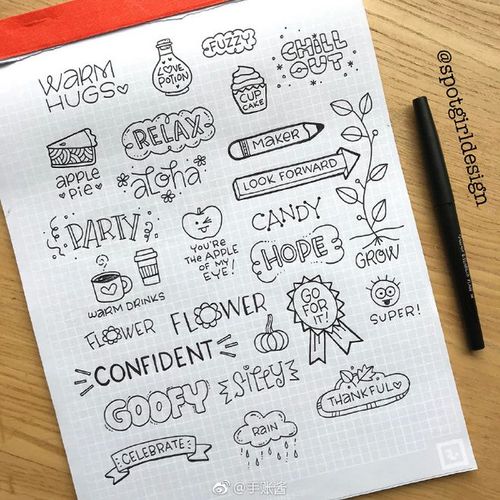 WARM
HUGS
LOVE
POTION
FUZZY
CHILL
OUT
CUP
CAKE
APPLE
PIE
RELAX
MAKER
aloha
LOOK FORWARD
PARTY
YOU'RE
THE APPLE
OF MY
EYE!
CANDY
HOPE
GROW
WARM DRINKS
FLOWER
FLOWER
GO
FOR
IT!
SUPER!
CONFIDENT
GOOFY
SILLY
THANKFUL
CELEBRATE
RAIN
@spotgirldesign
@手账酱